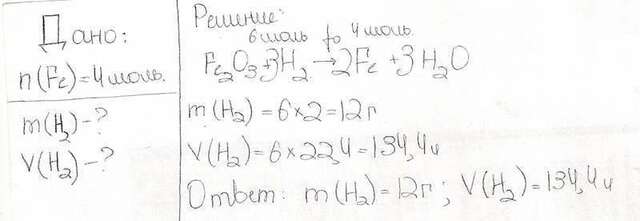 Дано:
n(Fe)=4 моль.
m(H₂)-?
V(H₂)-?
Решение:
6 моль to 4 моль
Fe₂O₃+3H₂→2Fe+3H₂O
m(H₂)=6×2=12г
V(H₂)=6×22,4=134,4л
Ответ: m(H₂)=12г; V(H₂)=134,4л